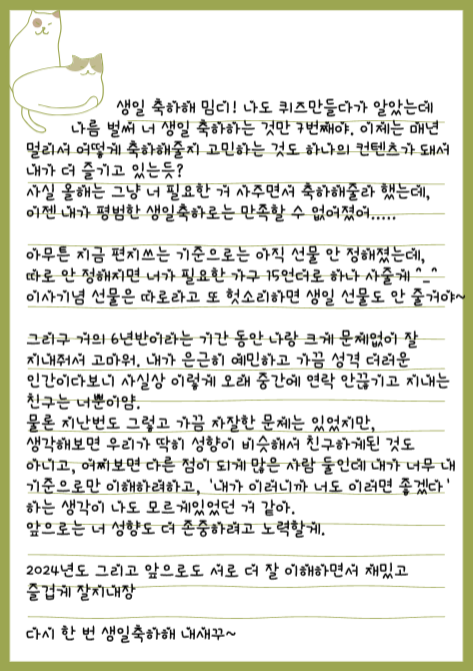 생일 축하해 밈디! 나도 퀴즈만들다가 알았는데
나름 벌써 너 생일 축하하는 것만 7번째야. 이제는 매년
멀리서 어떻게 축하해줄지 고민하는 것도 하나의 컨텐츠가 돼서
내가 더 즐기고 있는듯?
사실 올해는 그냥 너 필요한 거 사주면서 축하해줄라 했는데,
이젠 내가 평범한 생일축하로는 만족할 수 없어졌어.....
아무튼 지금 편지쓰는 기준으로는 아직 선물 안 정해졌는데,
따로 안 정해지면 너가 필요한 가구 15언더로 하나 사줄게 ^_^
이사기념 선물은 따로라고 또 헛소리하면 생일 선물도 안 줄거야~
그리구 거의 6년반이라는 기간 동안 나랑 크게 문제없이 잘
지내줘서 고마워. 내가 은근히 예민하고 가끔 성격 더러운
인간이다보니 사실상 이렇게 오래 중간에 연락 안끊기고 지내는
친구는 너뿐이얌.
물론 지난번도 그렇고 가끔 자잘한 문제는 있었지만,
생각해보면 우리가 딱히 성향이 비슷해서 친구하게된 것도
아니고, 어찌보면 다른 점이 되게 많은 사람 둘인데 내가 너무 내
기준으로만 이해하려하고, '내가 이러니까 너도 이러면 좋겠다'
하는 생각이 나도 모르게있었던 거 같아.
앞으로는 너 성향도 더 존중하려고 노력할게.
2024년도 그리고 앞으로도 서로 더 잘 이해하면서 재밌고
즐겁게 잘지내장
다시 한 번 생일축하해 내새꾸~